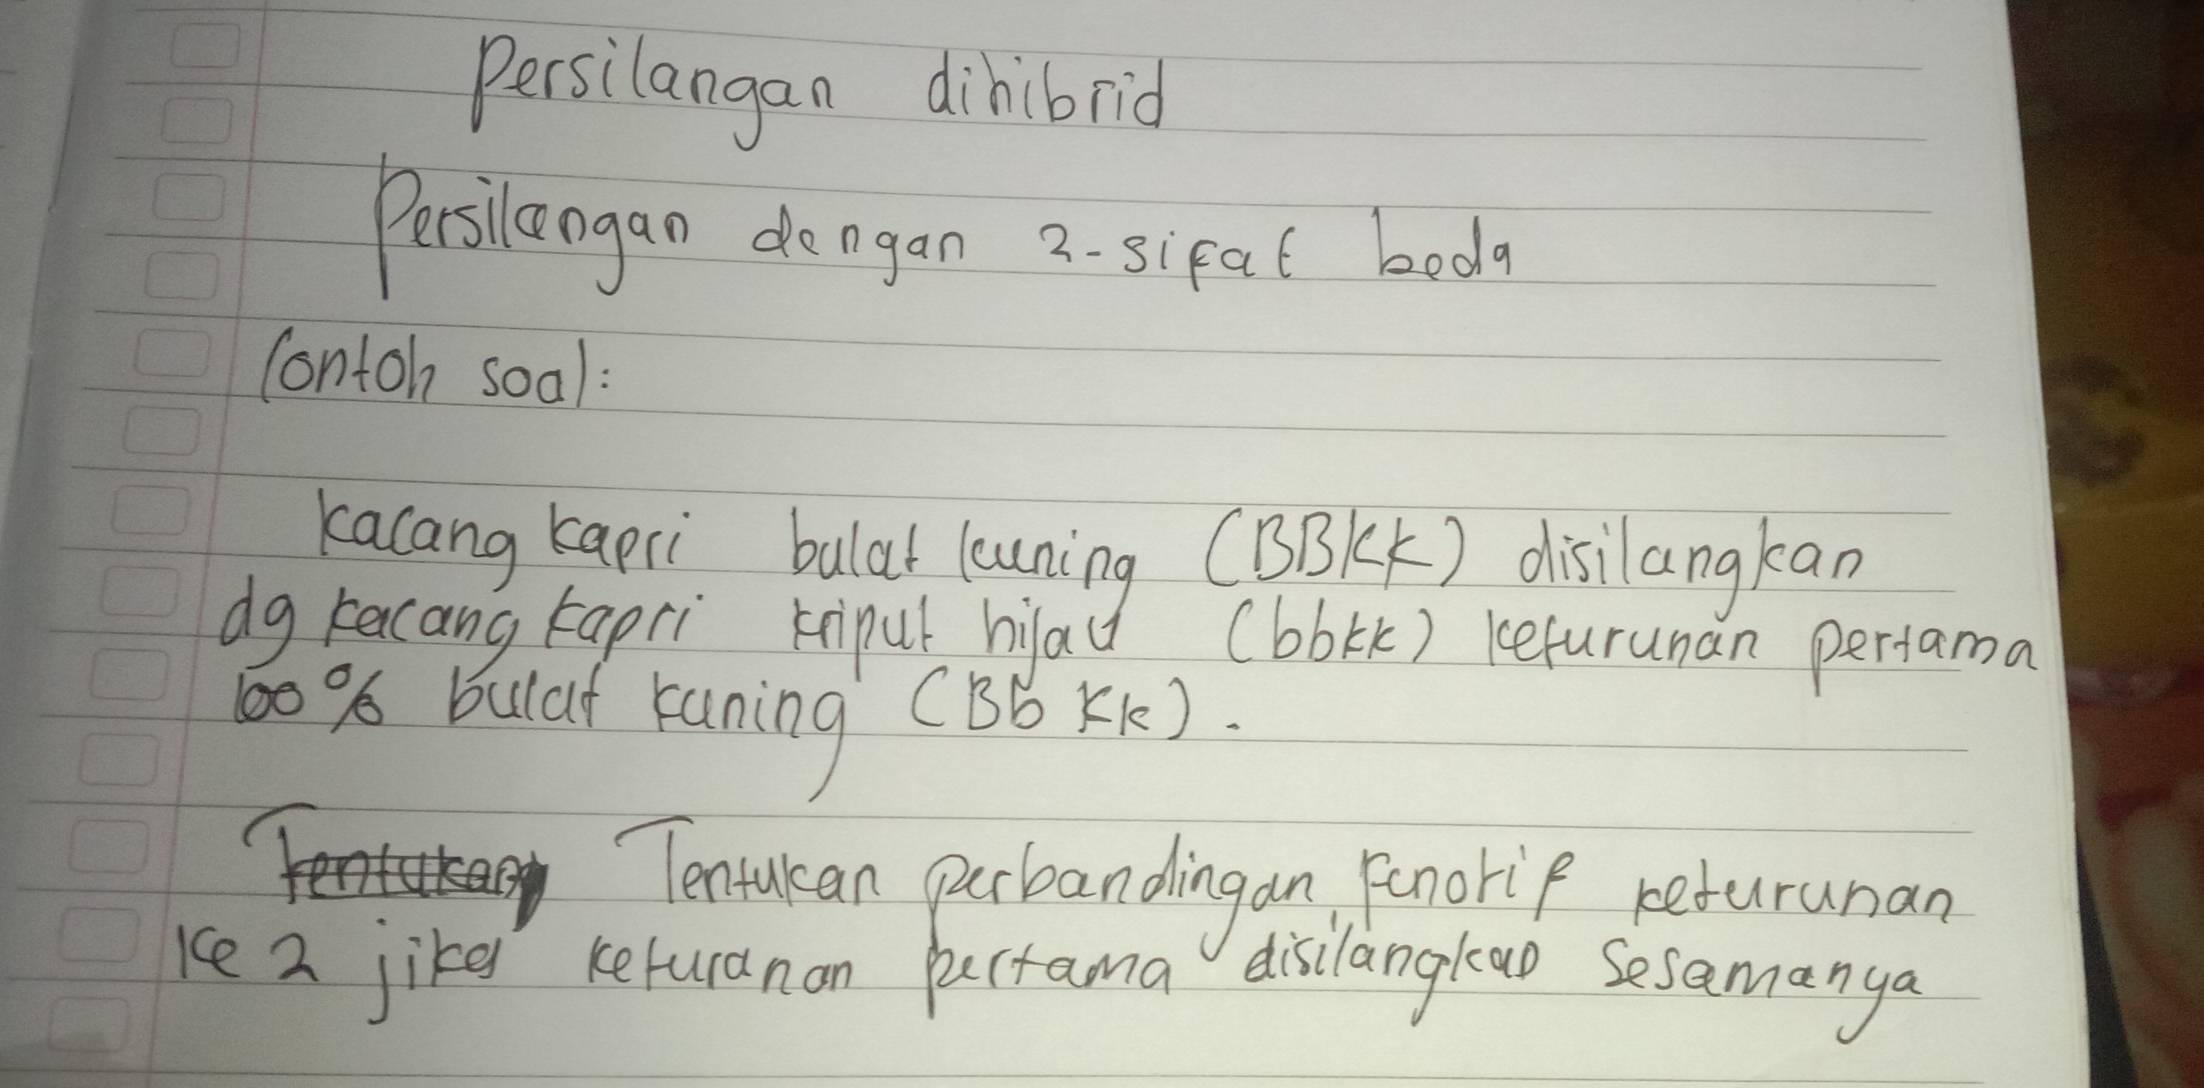 Persilangan dihibrid
Persilangan dengan 2-sifat beda
Contoh soal:
kacang kapri bulat kuning (BBKK) disilangkan
dg kacang kapri kriput hijau (bbkk) keturunan pertama
100% bulat kuning (Bb Kk).
Tentukan Tentukan perbandingan fenotif keturunan
Ke 2 jika keturanan pertama disilangkan Sesamanya